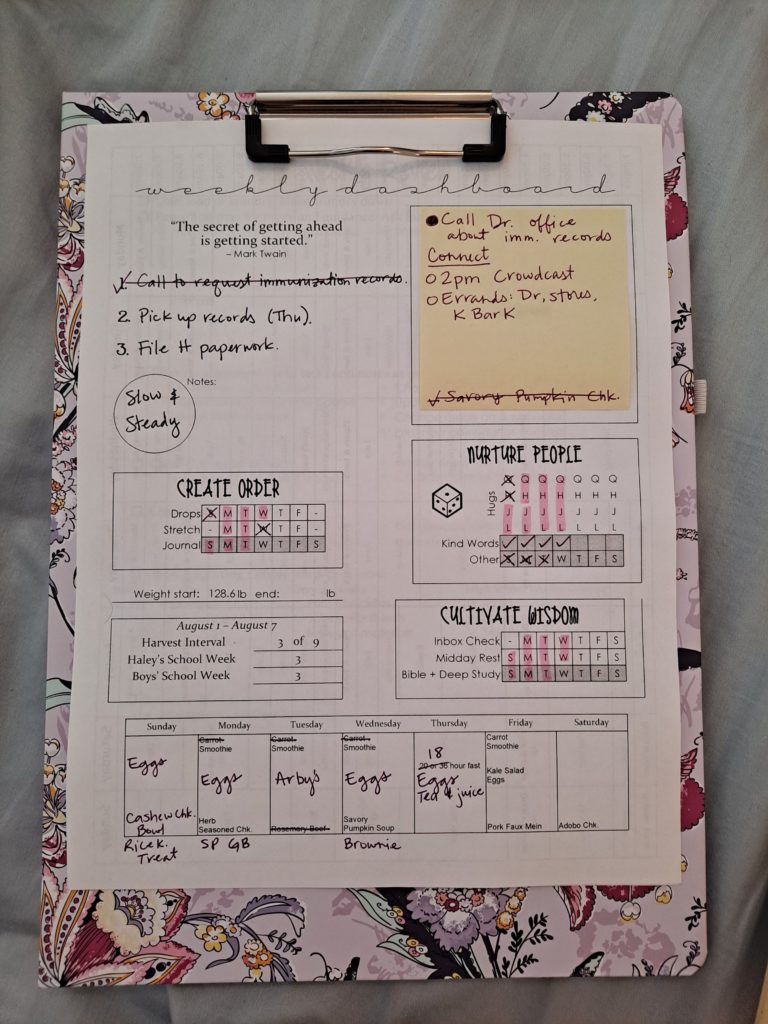 weekly dashboard
"The secret of getting ahead
is getting started."
– Mark Twain
1. Call to request immunization records.
2. Pick up records (Thu).
3. File H paperwork.
Notes:
Slow &
Steady
Call Dr. office
about imm. records
Connect
2pm Crowdcast
Errands: Dr, stores,
K Bar K
Savory Pumpkin Chk.
CREATE ORDER
Drops S M T W T F -
Stretch - M T W T F -
Journal S M T W T F S
NURTURE PEOPLE
Hugs
Q Q Q Q Q Q Q
H H H H H H H
J J J J J J J
L L L L L L L
Kind Words
Other S M T W T F S
Weight start: 128.6 lb end: lb
August 1 – August 7
Harvest Interval 3 of 9
Haley's School Week 3
Boys' School Week 3
CULTIVATE WISDOM
Inbox Check - M T W T F S
Midday Rest S M T W T F S
Bible + Deep Study S M T W T F S
Sunday Monday Tuesday Wednesday Thursday Friday Saturday
Eggs
Cashew Chk.
Bowl
Rice K.
Treat
Carrot
Smoothie
Eggs
Herb
Seasoned Chk.
SP GB
Carrot
Smoothie
Arbys
Rosemary Beef
Carrot
Smoothie
Eggs
Savory
Pumpkin Soup
Brownie
18
20 or 36 hour fast
Eggs
Tea & juice
Carrot
Smoothie
Kale Salad
Eggs
Pork Faux Mein
Adobo Chk.